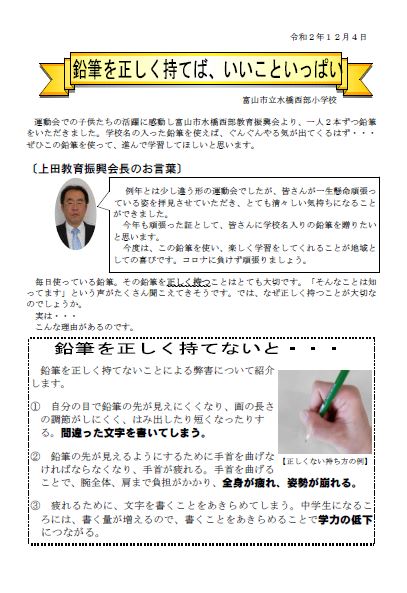 令和２年１２月４日
鉛筆を正しく持てば、いいこといっぱい
富山市立水橋西部小学校
運動会での子供たちの活躍に感動し富山市水橋西部教育振興会より、一人２本ずつ鉛筆
をいただきました。学校名の入った鉛筆を使えば、ぐんぐんやる気が出てくるはず・・・
ぜひこの鉛筆を使って、進んで学習してほしいと思います。
〔上田教育振興会長のお言葉〕
例年とは少し違う形の運動会でしたが、皆さんが一生懸命頑張っ
ている姿を拝見させていただき、とても清々しい気持ちになること
ができました。
今年も頑張った証として、皆さんに学校名入りの鉛筆を贈りたい
と思います。
今度は、この鉛筆を使い、楽しく学習をしてくれることが地域と
しての喜びです。コロナに負けず頑張りましょう。
毎日使っている鉛筆。その鉛筆を正しく持つことはとても大切です。「そんなことは知
ってます」という声がたくさん聞こえてきそうです。では、なぜ正しく持つことが大切な
のでしょうか。
実は・・・
こんな理由があるのです。
鉛筆を正しく持てないと・・・
鉛筆を正しく持てないことによる弊害について紹介
します。
① 自分の目で鉛筆の先が見えにくくなり、面の長さ
の調節がしにくく、はみ出したり短くなったりす
る。間違った文字を書いてしまう。
② 鉛筆の先が見えるようにするために手首を曲げな
ければならなくなり、手首が疲れる。手首を曲げる
ことで、腕全体、肩まで負担がかかり、全身が疲れ、姿勢が崩れる。
【正しくない持ち方の例】
③ 疲れるために、文字を書くことをあきらめてしまう。中学生になるこ
ろには、書く量が増えるので、書くことをあきらめることで学力の低下
につながる。